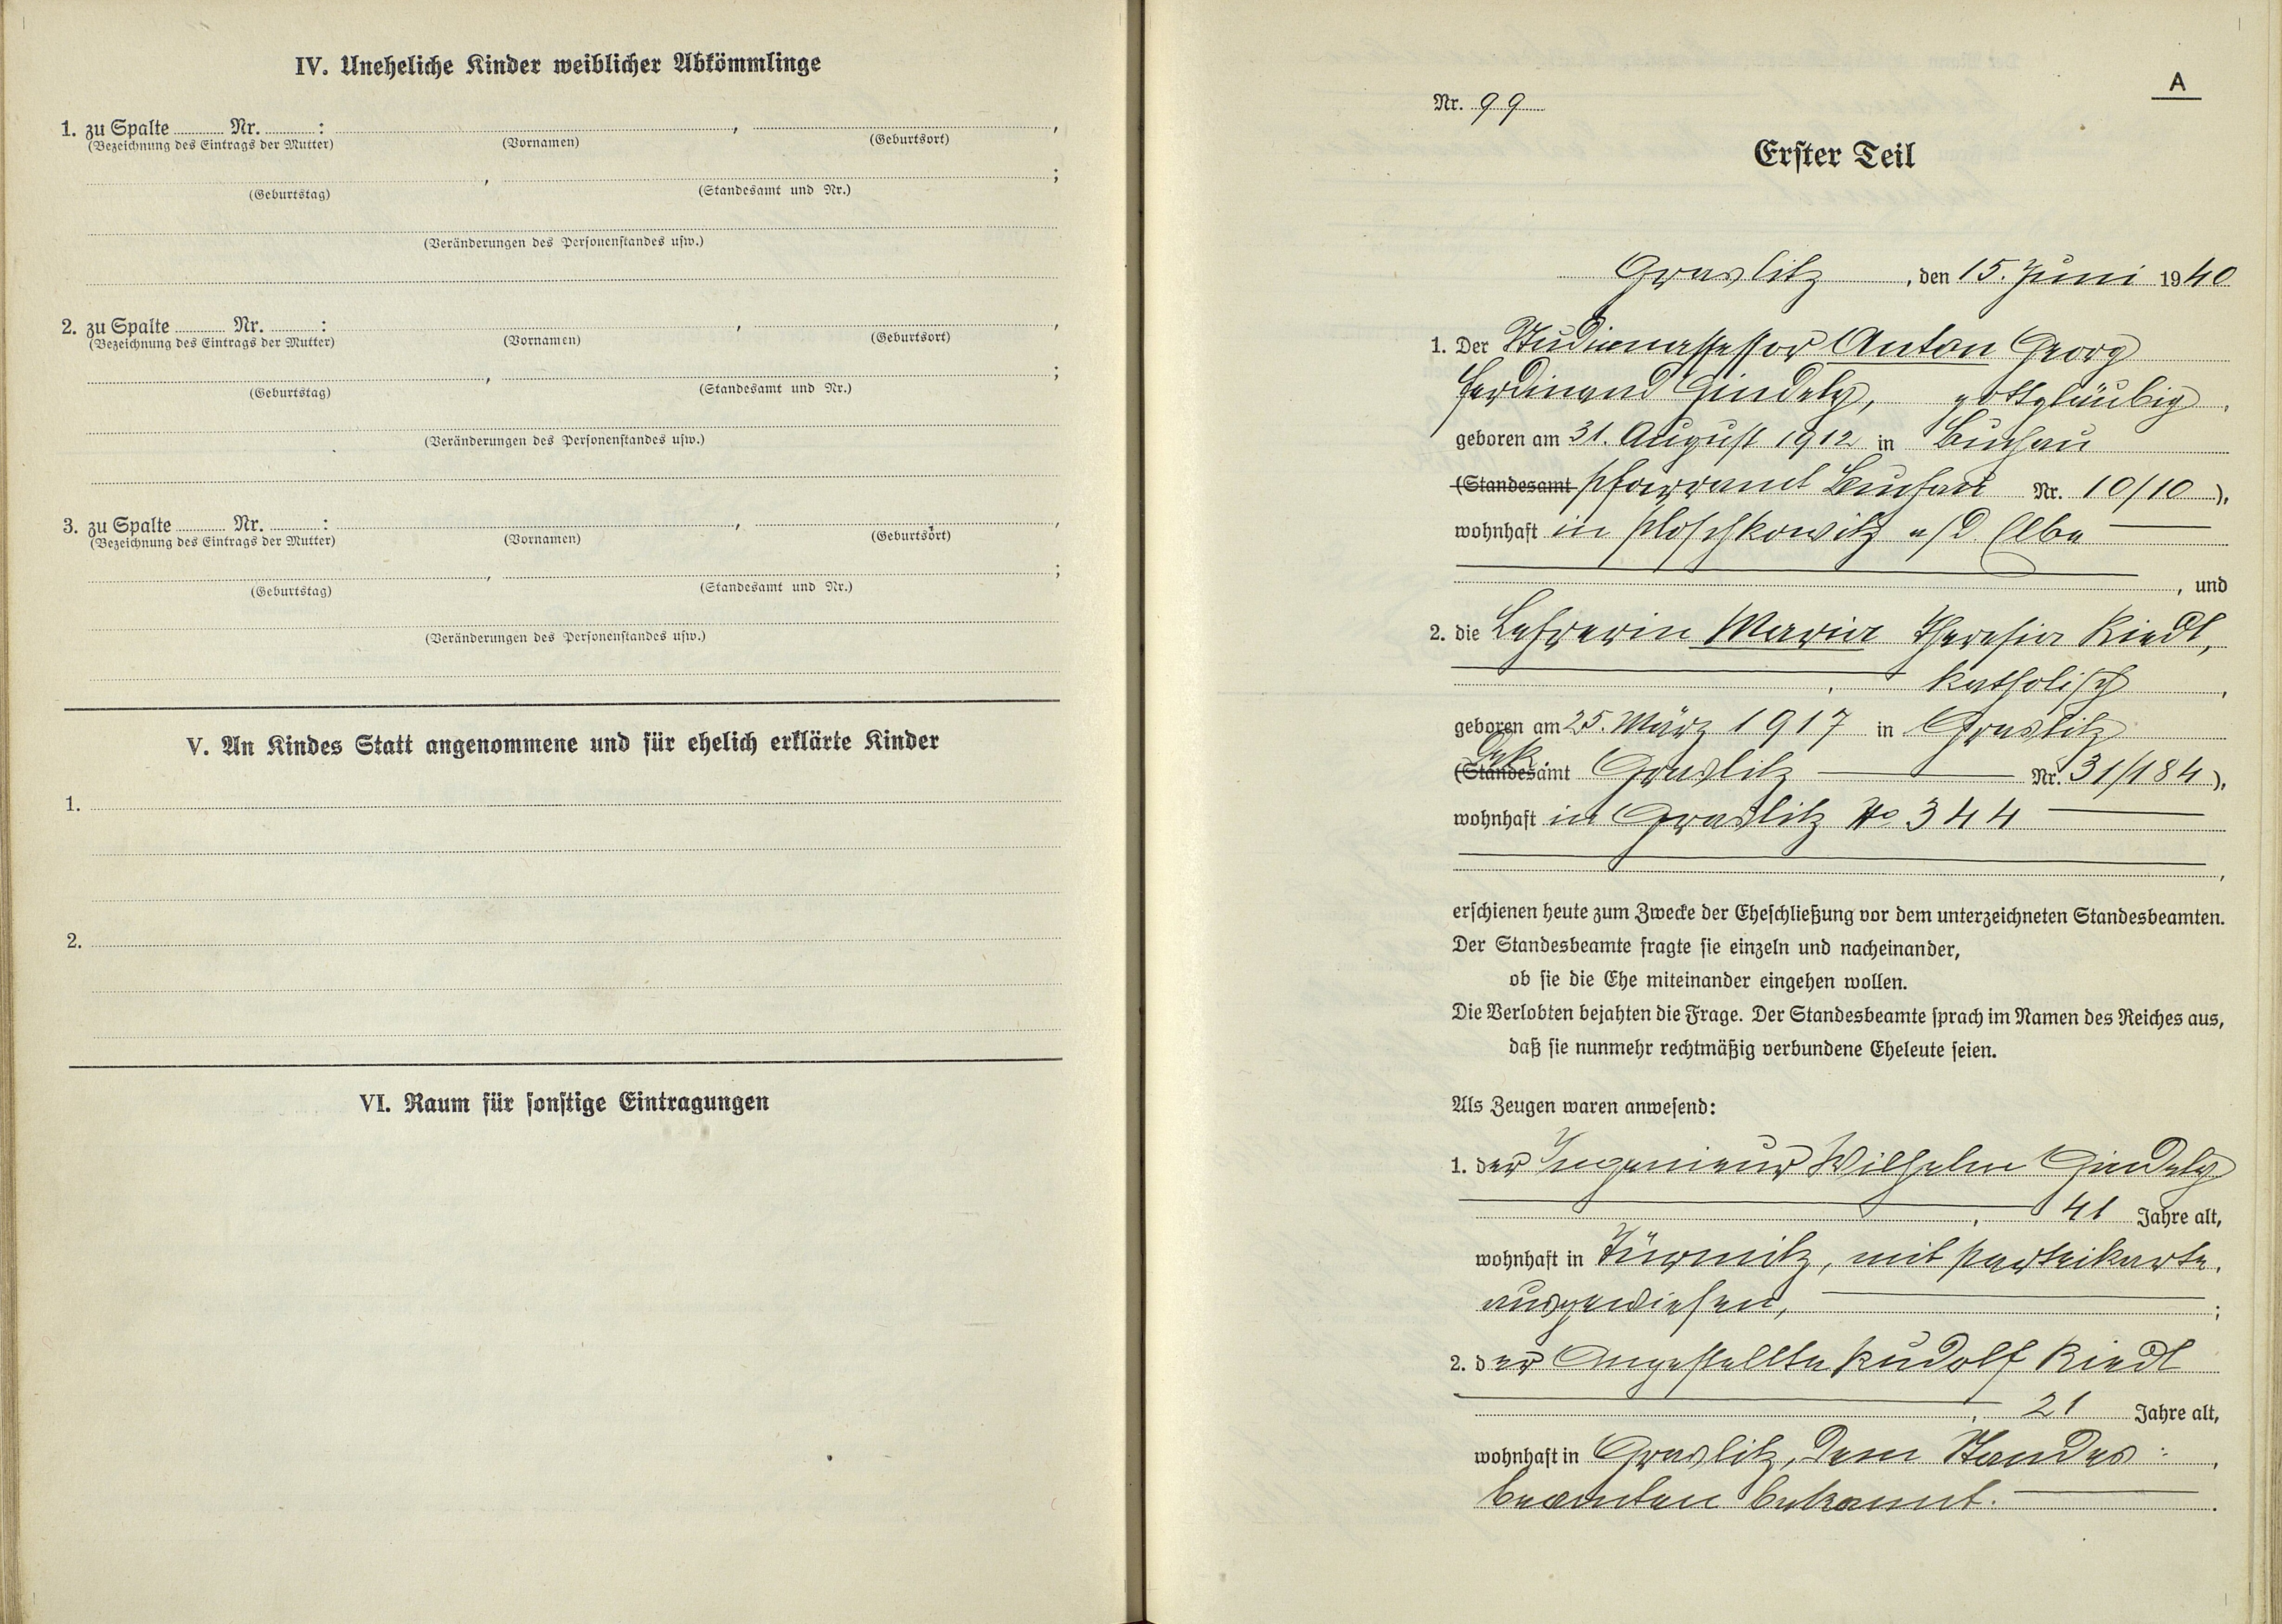 IV. Uneheliche Kinder weiblicher Abkömmlinge
1. zu Spalte Nr. : , ,
(Bezeichnung des Eintrags der Mutter) (Vornamen) (Geburtsort)
, ;
(Geburtstag) (Standesamt und Nr.)
(Veränderungen des Personenstandes usw.)
2. zu Spalte Nr. : , ,
(Bezeichnung des Eintrags der Mutter) (Vornamen) (Geburtsort)
, ;
(Geburtstag) (Standesamt und Nr.)
(Veränderungen des Personenstandes usw.)
3. zu Spalte Nr. : , ,
(Bezeichnung des Eintrags der Mutter) (Vornamen) (Geburtsort)
, ;
(Geburtstag) (Standesamt und Nr.)
(Veränderungen des Personenstandes usw.)
V. An Kindes Statt angenommene und für ehelich erklärte Kinder
1.
2.
VI. Raum für sonstige Eintragungen
A
Nr. 99
Erster Teil
Graslitz, den 15. Juni 1940
1. Der Studienassessor Anton Georg
Ferdinand Gindely, gottgläubig,
geboren am 31. August 1912 in Buchau
(Standesamt Pfarramt Buchau Nr. 10/10),
wohnhaft in Ploschkowitz a/d. Elbe
, und
2. die Lehrerin Maria Theresia Riedl,
katholisch,
geboren am 25. März 1917 in Graslitz
Dek
(Standesamt Graslitz Nr. 31/184),
wohnhaft in Graslitz No 344
,
erschienen heute zum Zwecke der Eheschließung vor dem unterzeichneten Standesbeamten.
Der Standesbeamte fragte sie einzeln und nacheinander,
ob sie die Ehe miteinander eingehen wollen.
Die Verlobten bejahten die Frage. Der Standesbeamte sprach im Namen des Reiches aus,
daß sie nunmehr rechtmäßig verbundene Eheleute seien.
Als Zeugen waren anwesend:
1. der Ingenieur Wilhelm Gindely
, 41 Jahre alt,
wohnhaft in Türmitz, mit Parteikarte
ausgewiesen, ;
2. der Angestellte Rudolf Riedl
, 21 Jahre alt,
wohnhaft in Graslitz, dem Standes:
beamten bekannt.